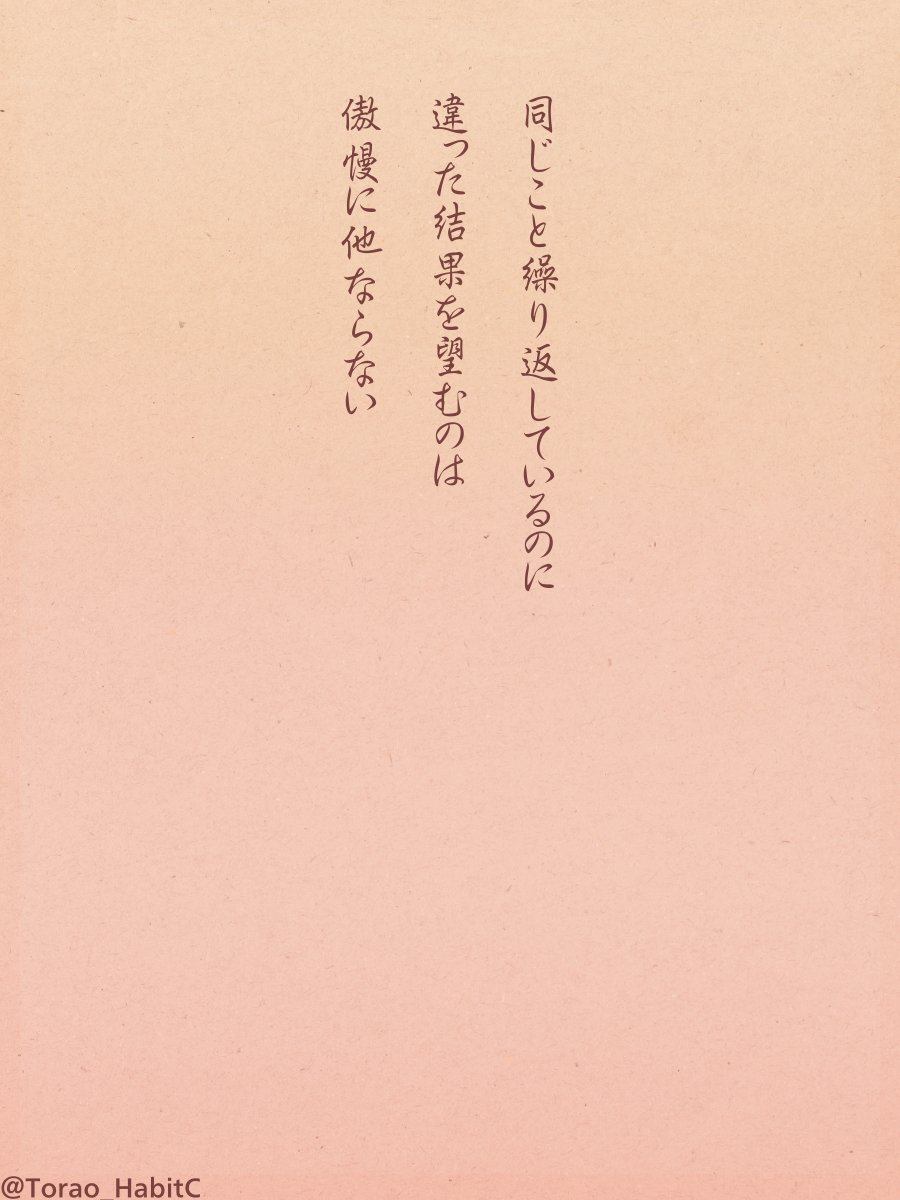 同じこと繰り返しているのに
違った結果を望むのは
傲慢に他ならない
@Torao_HabitC